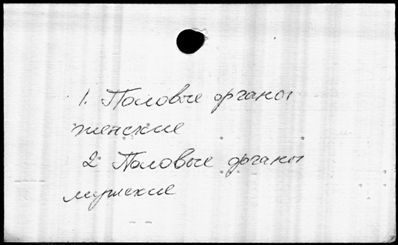 1. Половые органы
женские
2 Половые органы
мужские